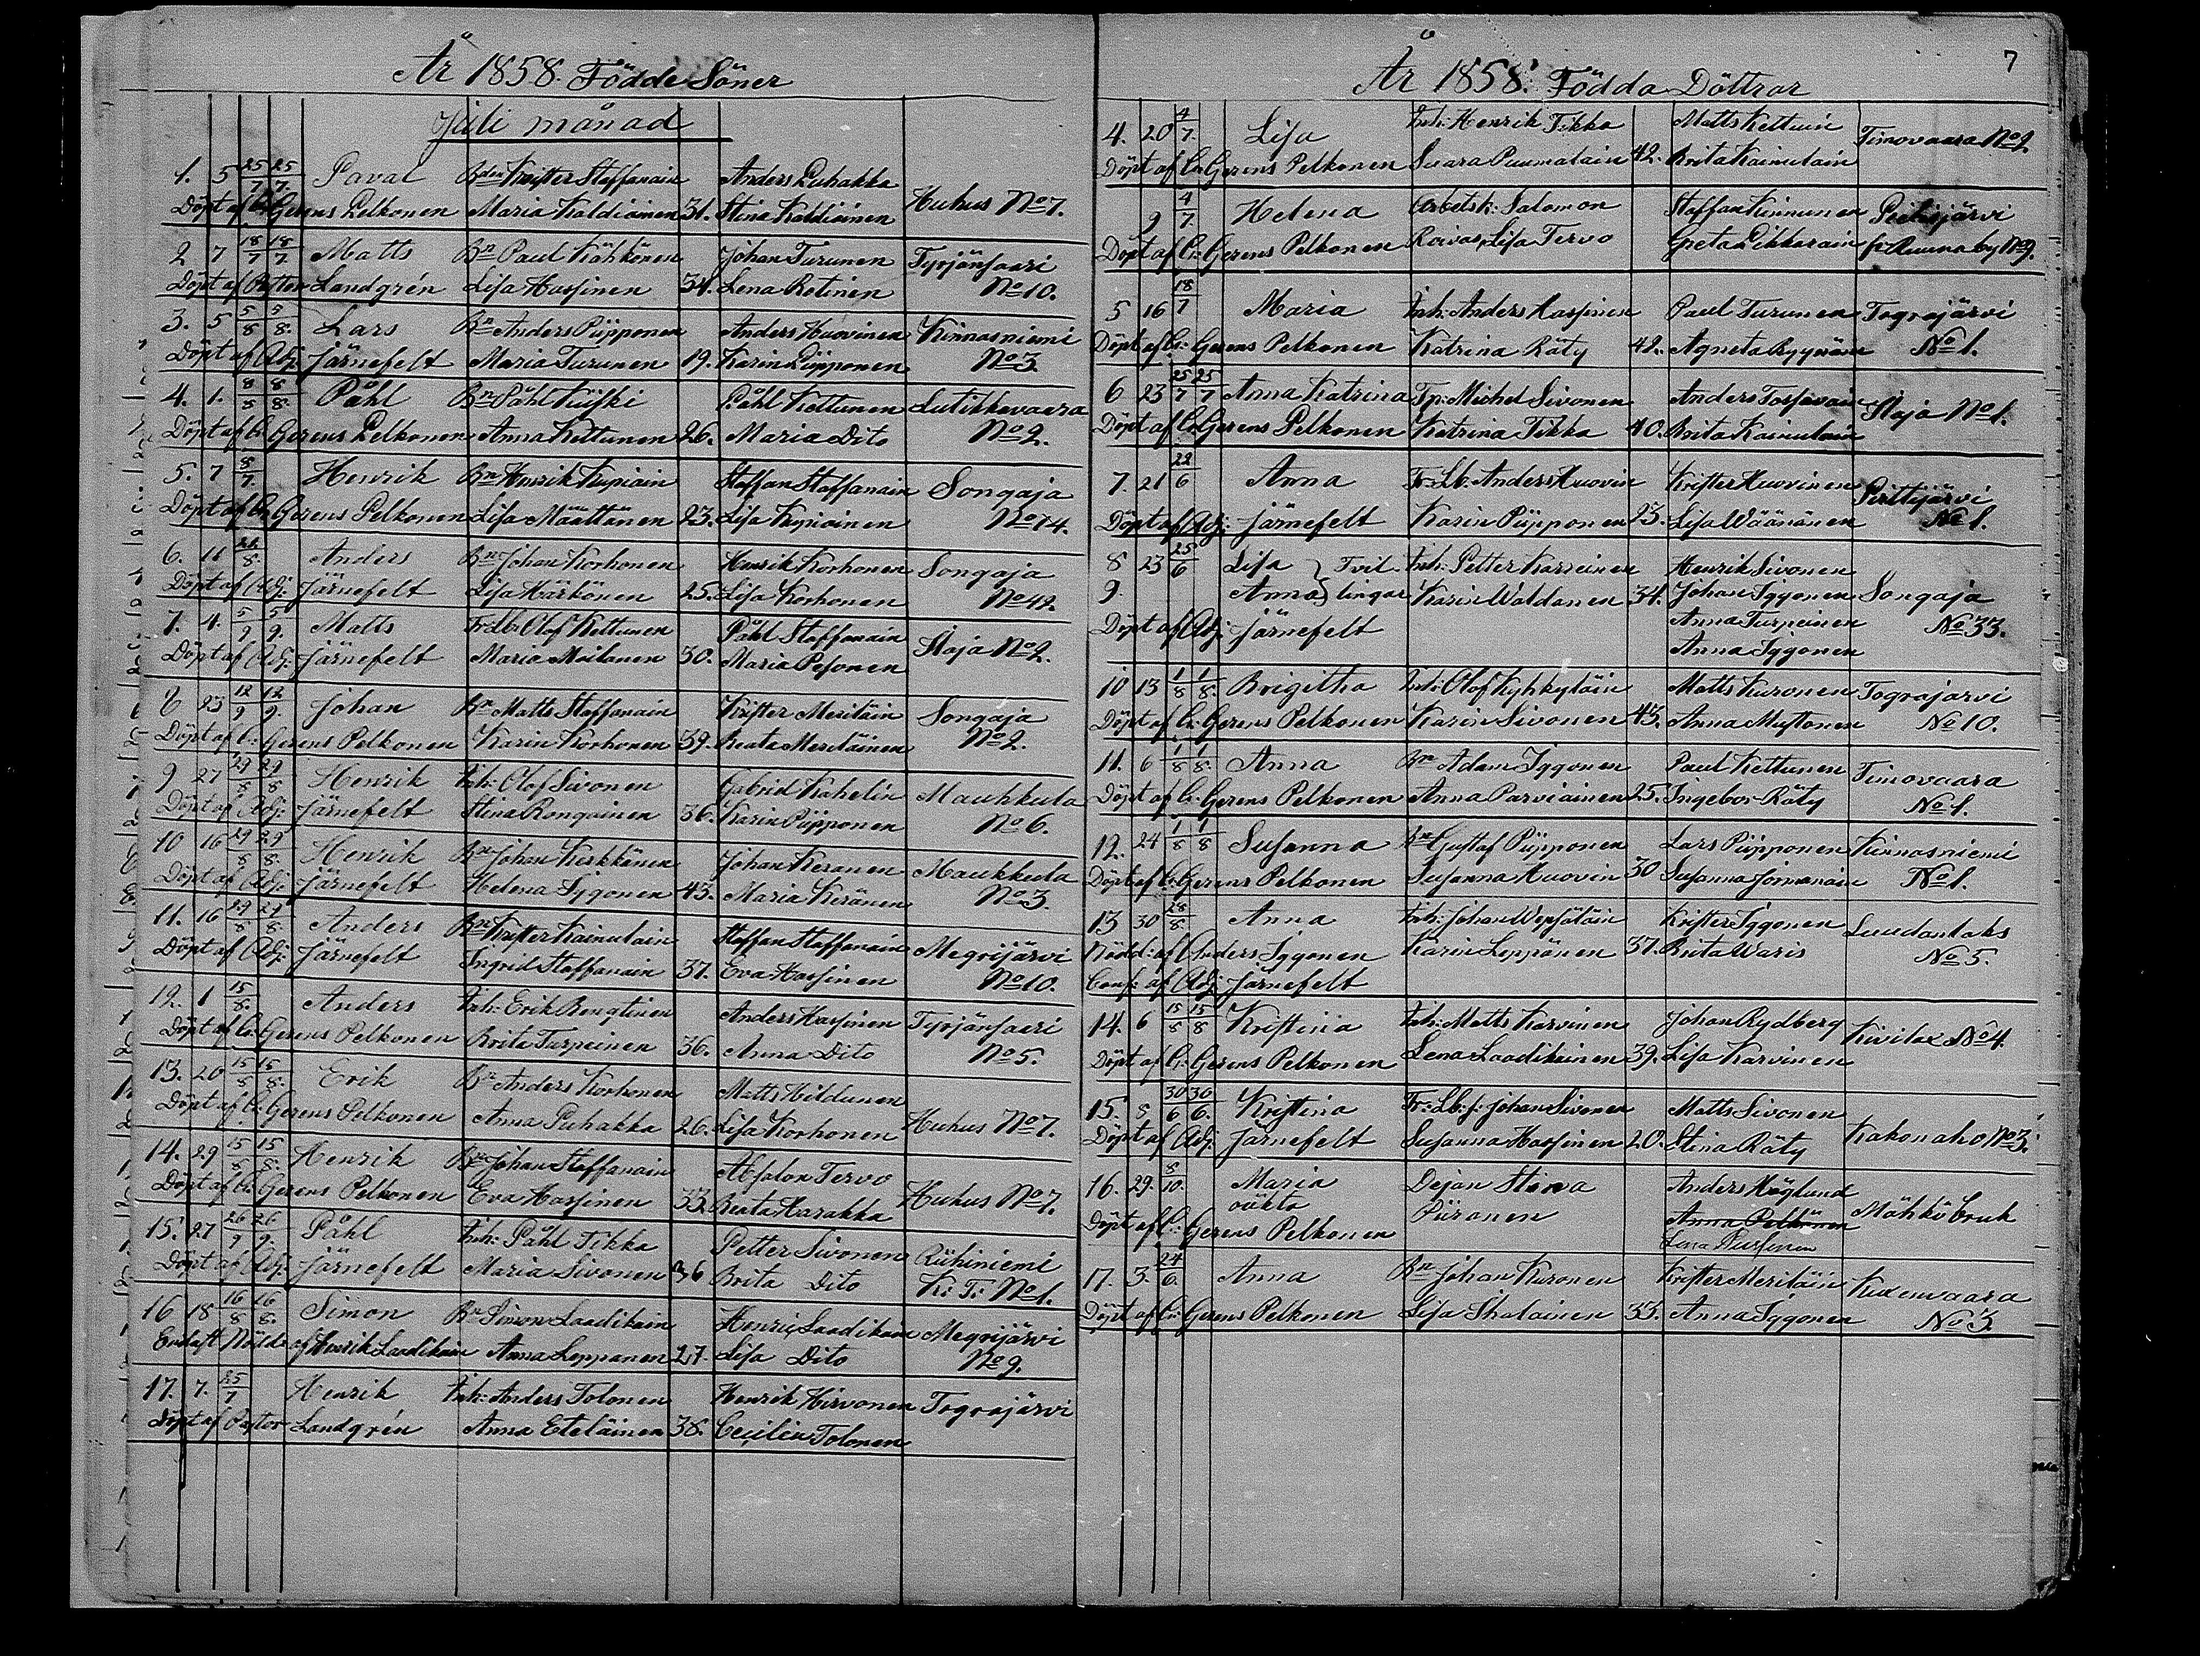 År 1858. Födde Söner
Juli månad
1. 5 25/7 25/7. Paval Bden Krister Staffanain Anders Puhakka
Döpt af Cr: Gerens Pelkonen Maria Kaldiainen 31. Stina Kaldiainen Huhus No 7.
2 7 18/7 18/7. Matts Bn Paul Kähkönen Johan Turunen Tyrjänsaari
Döpt af Pastor Landgrén Lisa Hassinen 34. Lena Rotinen No 10.
3. 5 5/8 5/8. Lars Bn Anders Piipponen Anders Huovinen Kinnasniemi
Döpt af Adj: Järnefelt Maria Turunen 19. Karin Piipponen No 3.
4. 1. 8/8 8/8. Påhl Bn Påhl Kiiski Påhl Kettunen Lutikkavaara
Döpt af Cr: Gerens Pelkonen Anna Kettunen 26. Maria Dito No 2.
5. 7 8/7. Henrik Bn Henrik Kupiain Staffan Staffanain Songaja
Döpt af Cr: Gerens Pelkonen Lisa Määttänen 23. Lisa Kupiainen No 14.
6. 11 21/8. Anders Bn Johan Korhonen Henrik Korhonen Songaja
Döpt af Adj: Järnefelt Lisa Härkönen 25. Lisa Korhonen No 42.
7. 4. 5/9 5/9. Matts Fr: Lb: Olof Kettunen Påhl Staffanain
Döpt af Adj: Järnefelt Maria Moilanen 30. Maria Pesonen Haja No 2.
8 23 12/9 12/9. Johan Bn Matts Staffanain Krister Meriläin Songaja
Döpt af Cr: Gerens Pelkonen Karin Korhonen 39. Beata Meriläinen No 2.
9 27 29/8 29/8 Henrik Inh: Olof Sivonen Gabriel Kahelin Mauhkula
Döpt af Adj: Järnefelt Stina Rongainen 36. Karin Piipponen No 6.
10 16 29/8 29/8. Henrik Bn Johan Keskkänen Johan Keranen Maukkula
Döpt af Adj: Järnefelt Helena Iggonen 43. Maria Keränen No 3.
11. 16 29/8 29/8. Anders Bn Krister Kainulain Staffan Staffanain Megrijärvi
Döpt af Adj: Järnefelt Ingrid Staffanain 37. Eva Hassinen No 10.
12. 1 15/8. Anders Inh: Erik Rengtinen Anders Hassinen Tyrjänsaari
Döpt af Cr: Gerens Pelkonen Brita Turpeinen 36. Anna Dito No 5.
13. 20 15/8 15/8. Erik Bn Anders Korhonen Matts Hildunen
Döpt af Cr: Gerens Pelkonen Anna Puhakka 26. Lisa Korhonen Huhus No 7.
14. 29 15/8 15/8. Henrik Bn Johan Staffanain Absalon Tervo
Döpt af Cr: Gerens Pelkonen Eva Hassinen 33. Beata Harakka Huhus No 7.
15. 27 26/9 26/9. Påhl Inh: Påhl Tikka Petter Sivonen Riihiniemi
Döpt af Adj: Järnefelt Maria Sivonen 36 Brita Dito K: T: No 1.
16 18 16/8 16/8. Simon Bn Simon Laadikain Henric Laadikain Megrijärvi
Endast Nödd: af Henrik Laadikain Anna Leppänen 27. Lisa Dito No 9.
17. 7. 25/7 Henrik Inh: Anders Tolonen Henrik Hirvonen Tograjärvi
Döpt af Pastor Landgrén Anna Eteläinen 38. Cecilia Tolonen
År 1858. Födda Döttrar
7
4. 20 4/7. Lisa Inh: Henrik Tikka Matts Kettuin Timovaara No 2
Döpt af Cr: Gerens Pelkonen Saara Puumalain 42. Brita Kainulain
9 4/7. Helena Arbetsk: Salomon Staffan Kinnunen
Döpt af Cr: Gerens Pelkonen Roivas, Lisa Tervo Greta Pikkarain fr Ruuna by No 9.
5 16 18/7 Maria Inh: Anders Hassinen Paul Turunen Tograjärvi
Döpt af Cr: Gerens Pelkonen Katrina Räty 42. Agneta Ryynäin No 1.
6 23 25/7 25/7 Anna Katrina Tp: Michel Sivonen Anders Torsivain Haja No 1.
Döpt af Cr: Gerens Pelkonen Katrina Tikka 40. Brita Kainulain
7. 21 22/6 Anna Fr: Lb: Anders Huovin Krister Huovinen
Döpt af Adj: Järnefelt Karin Piipponen 23. Lisa Wäänänen No 1.
8 23 25/6 Lisa } Tvil- Inh: Petter Karvinen Henrik Sivonen
9. Anna } lingar Karin Waldanen 34. Johan Iggonen Songaja
Döpt af Adj: Järnefelt Anna Turpeinen No 33.
Anna Iggonen
10 13 1/8 1/8. Brigitha Inh: Olof Kyhkyläin Matts Kuronen Tograjarvi
Döpt af Cr: Gerens Pelkonen Karin Sivonen 43. Anna Mustonen No 10.
11. 6 1/8 1/8. Anna Bn Adam Iggonen Paul Kettunen Timovaara
Döpt af Cr: Gerens Pelkonen Anna Parviainen 25. Ingebor Räty No 1.
12. 24 1/8 1/8 Susanna Bn Gustaf Piipponen Lars Piipponen Kinnasniemi
Döpt af Cr: Gerens Pelkonen Susanna Huovin 30 Susanna Jormanain No 1.
13 30 28/8. Anna Inh: Johan Wepsäläin Krister Iggonen Luudanlaks
Nödd: af Anders Iggonen Karin Leppänen 37. Brita Waris No 5.
Conf: af Adj: Järnefelt
14. 6 15/8 15/8 Kristina Inh: Matts Karvinen Johan Rydberg Kivilax No 4.
Döpt af Cr: Gerens Pelkonen Lena Laadikainen 39. Lisa Karvinen
15. 8 30/6 30/6. Kristina Fr: Lb: s: Johan Sivonen Matts Sivonen
Döpt af Adj: Järnefelt Susanna Hassinen 20. Stina Räty Kakonaho No 3.
16. 29. 8/10. Maria Dejan Stina Anders Höglund
oäkta Piironen Anna Pelkonen Möhkö bruk
Döpt af Cr: Gerens Pelkonen Lena Pursinen
17. 3. 24/6. Anna Bn Johan Kuronen Krister Meriläin Kuxenvaara
Döpt af Cr: Gerens Pelkonen Lisa Ikolainen 33. Anna Iggonen No 3.